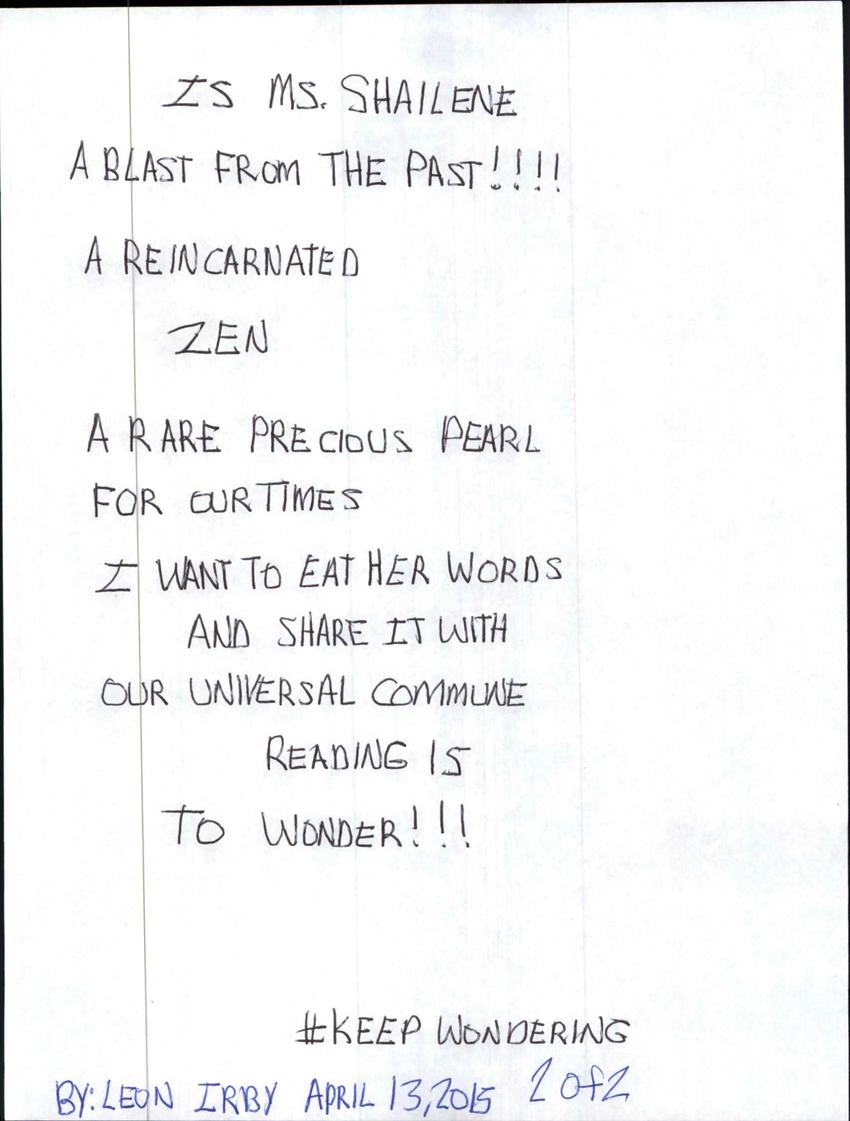 IS MS. SHAILENE
A BLAST FROM THE PAST!!!!
A REINCARNATED
ZEN
A RARE PRECIOUS PEARL
FOR OUR TIMES
I WANT TO EAT HER WORDS
AND SHARE IT WITH
OUR UNIVERSAL COMMUNE
READING IS
TO WONDER!!!
#KEEP WONDERING
BY: LEON IRBY APRIL 13, 2015 2 of 2